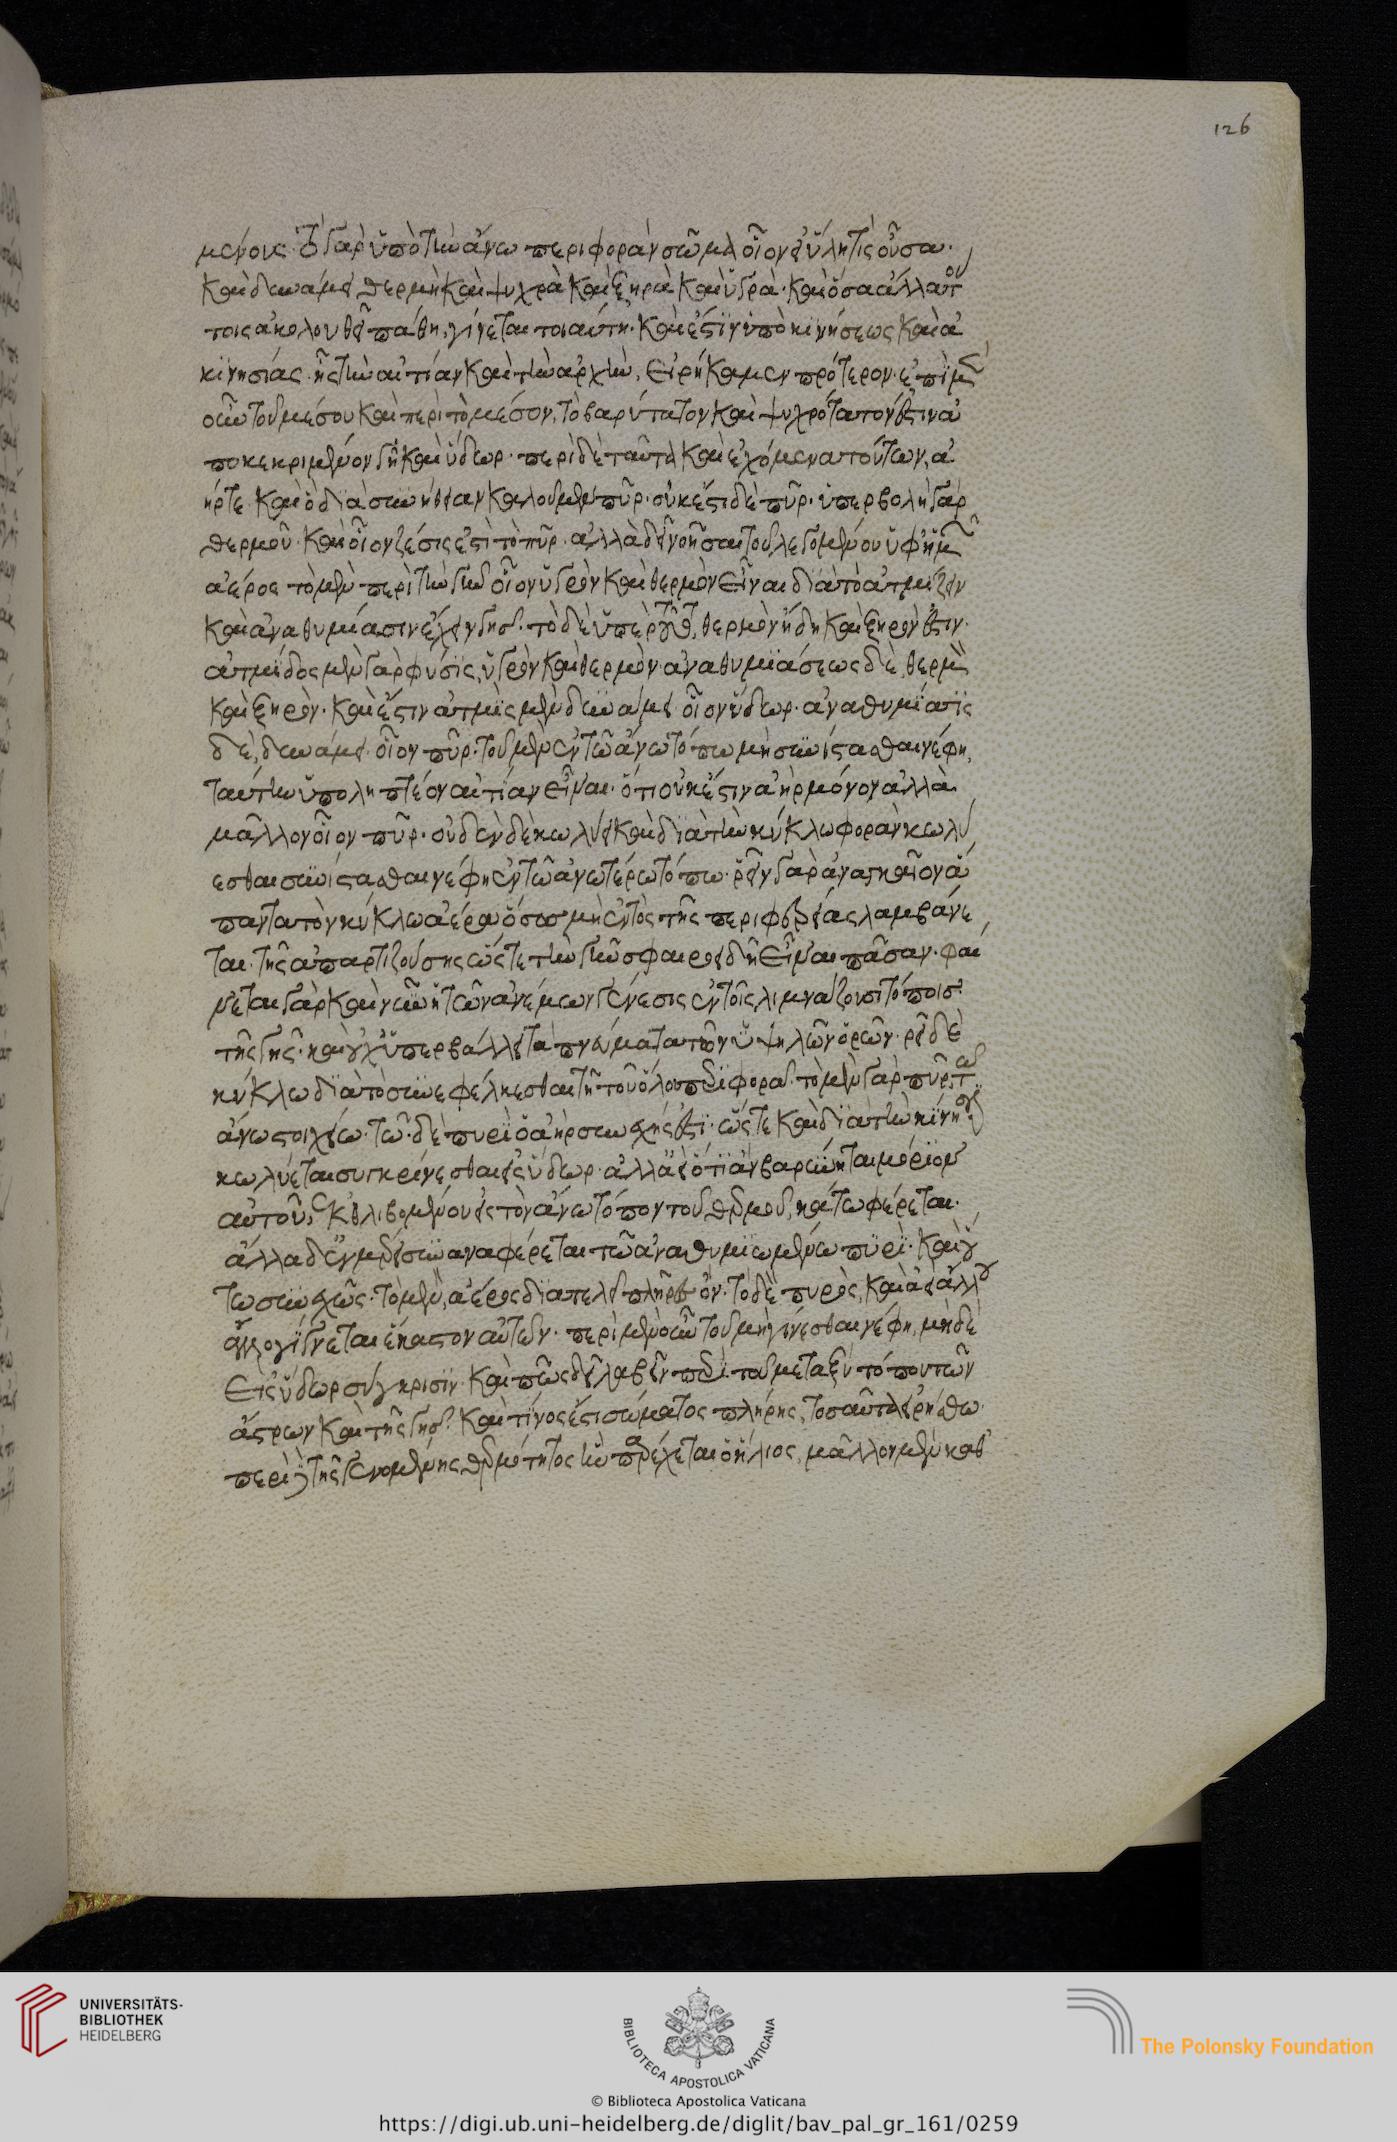 μένοις· τὸ γὰρ ὑπὸ τὴν ἄνω περιφορὰν σῶμα οἷον εἰ ὕλη τὶς οὖσα·
καὶ δυνάμει θερμὴ καὶ ψυχρὰ καὶ ξηρὰ καὶ ὑγρὰ· καὶ ὅσα ἄλλα τού
τοις ἀκολουθεῖ πάθη, γίνεται τοιαύτη· καὶ ἔστιν ὑπὸ κινήσεως καὶ ἀ
κινησίας· ἧς τὴν αἰτίαν καὶ τὴν ἀρχὴν, εἰρήκαμεν πρότερον· ἐπὶ μὲν
οὖν τοῦ μέσου καὶ περὶ τὸ μέσον, τὸ βαρύτατον καὶ ψυχρότατόν ἐστιν ἀ
ποκεκριμένον γῆ καὶ ὕδωρ· περὶ δὲ ταῦτα καὶ ἐχόμενα τούτων, ἀ
ήρ τε καὶ ὃ διὰ συνήθειαν καλοῦμεν πῦρ· οὐκ ἔστι δὲ πῦρ· ὑπερβολὴ γὰρ
θερμοῦ· καὶ οἷον ζέσις ἐστὶ τὸ πῦρ· ἀλλὰ δεῖ νοῆσαι τοῦ λεγομένου ὑφ' ἡμῶν
ἀέρος τὸ μὲν περὶ τὴν γῆν οἷον ὑγρὸν καὶ θερμὸν εἶναι διὰ τὸ ἀτμίζειν
καὶ ἀναθυμίασιν ἔχειν γῆς· τὸ δὲ ὑπὲρ τοῦτο, θερμὸν ἤδη καὶ ξηρόν ἐστιν·
ἀτμίδος μὲν γὰρ φύσις, ὑγρὸν καὶ θερμὸν· ἀναθυμιάσεως δὲ, θερμὸν
καὶ ξηρὸν· καὶ ἔστιν ἀτμὶς μὲν δυνάμει οἷον ὕδωρ· ἀναθυμίασις
δὲ, δυνάμει οἷον πῦρ· τοῦ μὲν ἐν τῶ ἄνω τόπω μὴ συνίστασθαι νέφη,
ταύτην ὑποληπτέον αἰτίαν εἶναι· ὅτι οὐκ ἔστιν ἀὴρ μόνον ἀλλὰ
μᾶλλον οἷον πῦρ· οὐδὲν δὲ κωλύει καὶ διὰ τὴν κύκλω φορὰν κωλύ
εσθαι συνίστασθαι νέφη ἐν τῶ ἀνωτέρω τόπω· ῥεῖν γὰρ ἀναγκαῖον ἅ
παντα τὸν κύκλω ἀέρα· ὅσος μὴ ἐντὸς τῆς περιφερείας λαμβάνε
ται· τῆς ἀπαρτιζούσης ὥστε τὴν γῆν σφαιροειδῆ εἶναι πᾶσαν· φαί
νεται γὰρ καὶ νῦν ἡ τῶν ἀνέμων γένεσις ἐν τοῖς λιμνάζουσι τόποις
τῆς γῆς· καὶ οὐχ ὑπερβάλλει τὰ πνεύματα τῶν ὑψηλῶν ὀρῶν· ῥεῖ δὲ
κύκλω διὰ τὸ συνεφέλκεσθαι τῆ τοῦ ὅλου περιφορᾶ· τὸ μὲν γὰρ πῦρ, τῶ
ἄνω στοιχείω· τῶ δὲ πυρὶ ὁ ἀὴρ συνεχής ἐστι· ὥστε καὶ διὰ τὴν κίνησιν
κωλύεται συγκρίνεσθαι εἰς ὕδωρ· ἀλλ' ἀεὶ ὅ τι ἂν βαρύνηται μόριον
αὐτοῦ, ἐκθλιβομένου εἰς τὸν ἄνω τόπον τοῦ θερμοῦ, κάτω φέρεται·
ἄλλα δ' ἐν μέρει συναναφέρεται τῶ ἀναθυμιωμένω πυρὶ· καὶ οὕ
τω συνεχῶς· τὸ μὲν, ἀέρος διατελεῖ πλῆρες ὂν· τὸ δὲ πυρὸς, καὶ ἀεὶ ἄλλο
καὶ ἄλλο γίγνεται ἕκαστον αὐτῶν· περὶ μὲν οὖν τοῦ μὴ γίνεσθαι νέφη, μηδὲ
εἰς ὕδωρ σύγκρισιν· καὶ πῶς δεῖ λαβεῖν περὶ τοῦ μεταξὺ τόπου τῶν
ἄστρων καὶ τῆς γῆς· καὶ τίνος ἐστὶ σώματος πλήρης, τοσαῦτα εἰρήσθω·
περὶ δὲ τῆς γενομένης θερμότητος ἣν παρέχεται ὁ ἥλιος, μᾶλλον μὲν καθ'
126
UNIVERSITÄTS-
BIBLIOTHEK
HEIDELBERG
BIBLIOTECA APOSTOLICA VATICANA
The Polonsky Foundation
© Biblioteca Apostolica Vaticana
https://digi.ub.uni-heidelberg.de/diglit/bav_pal_gr_161/0259